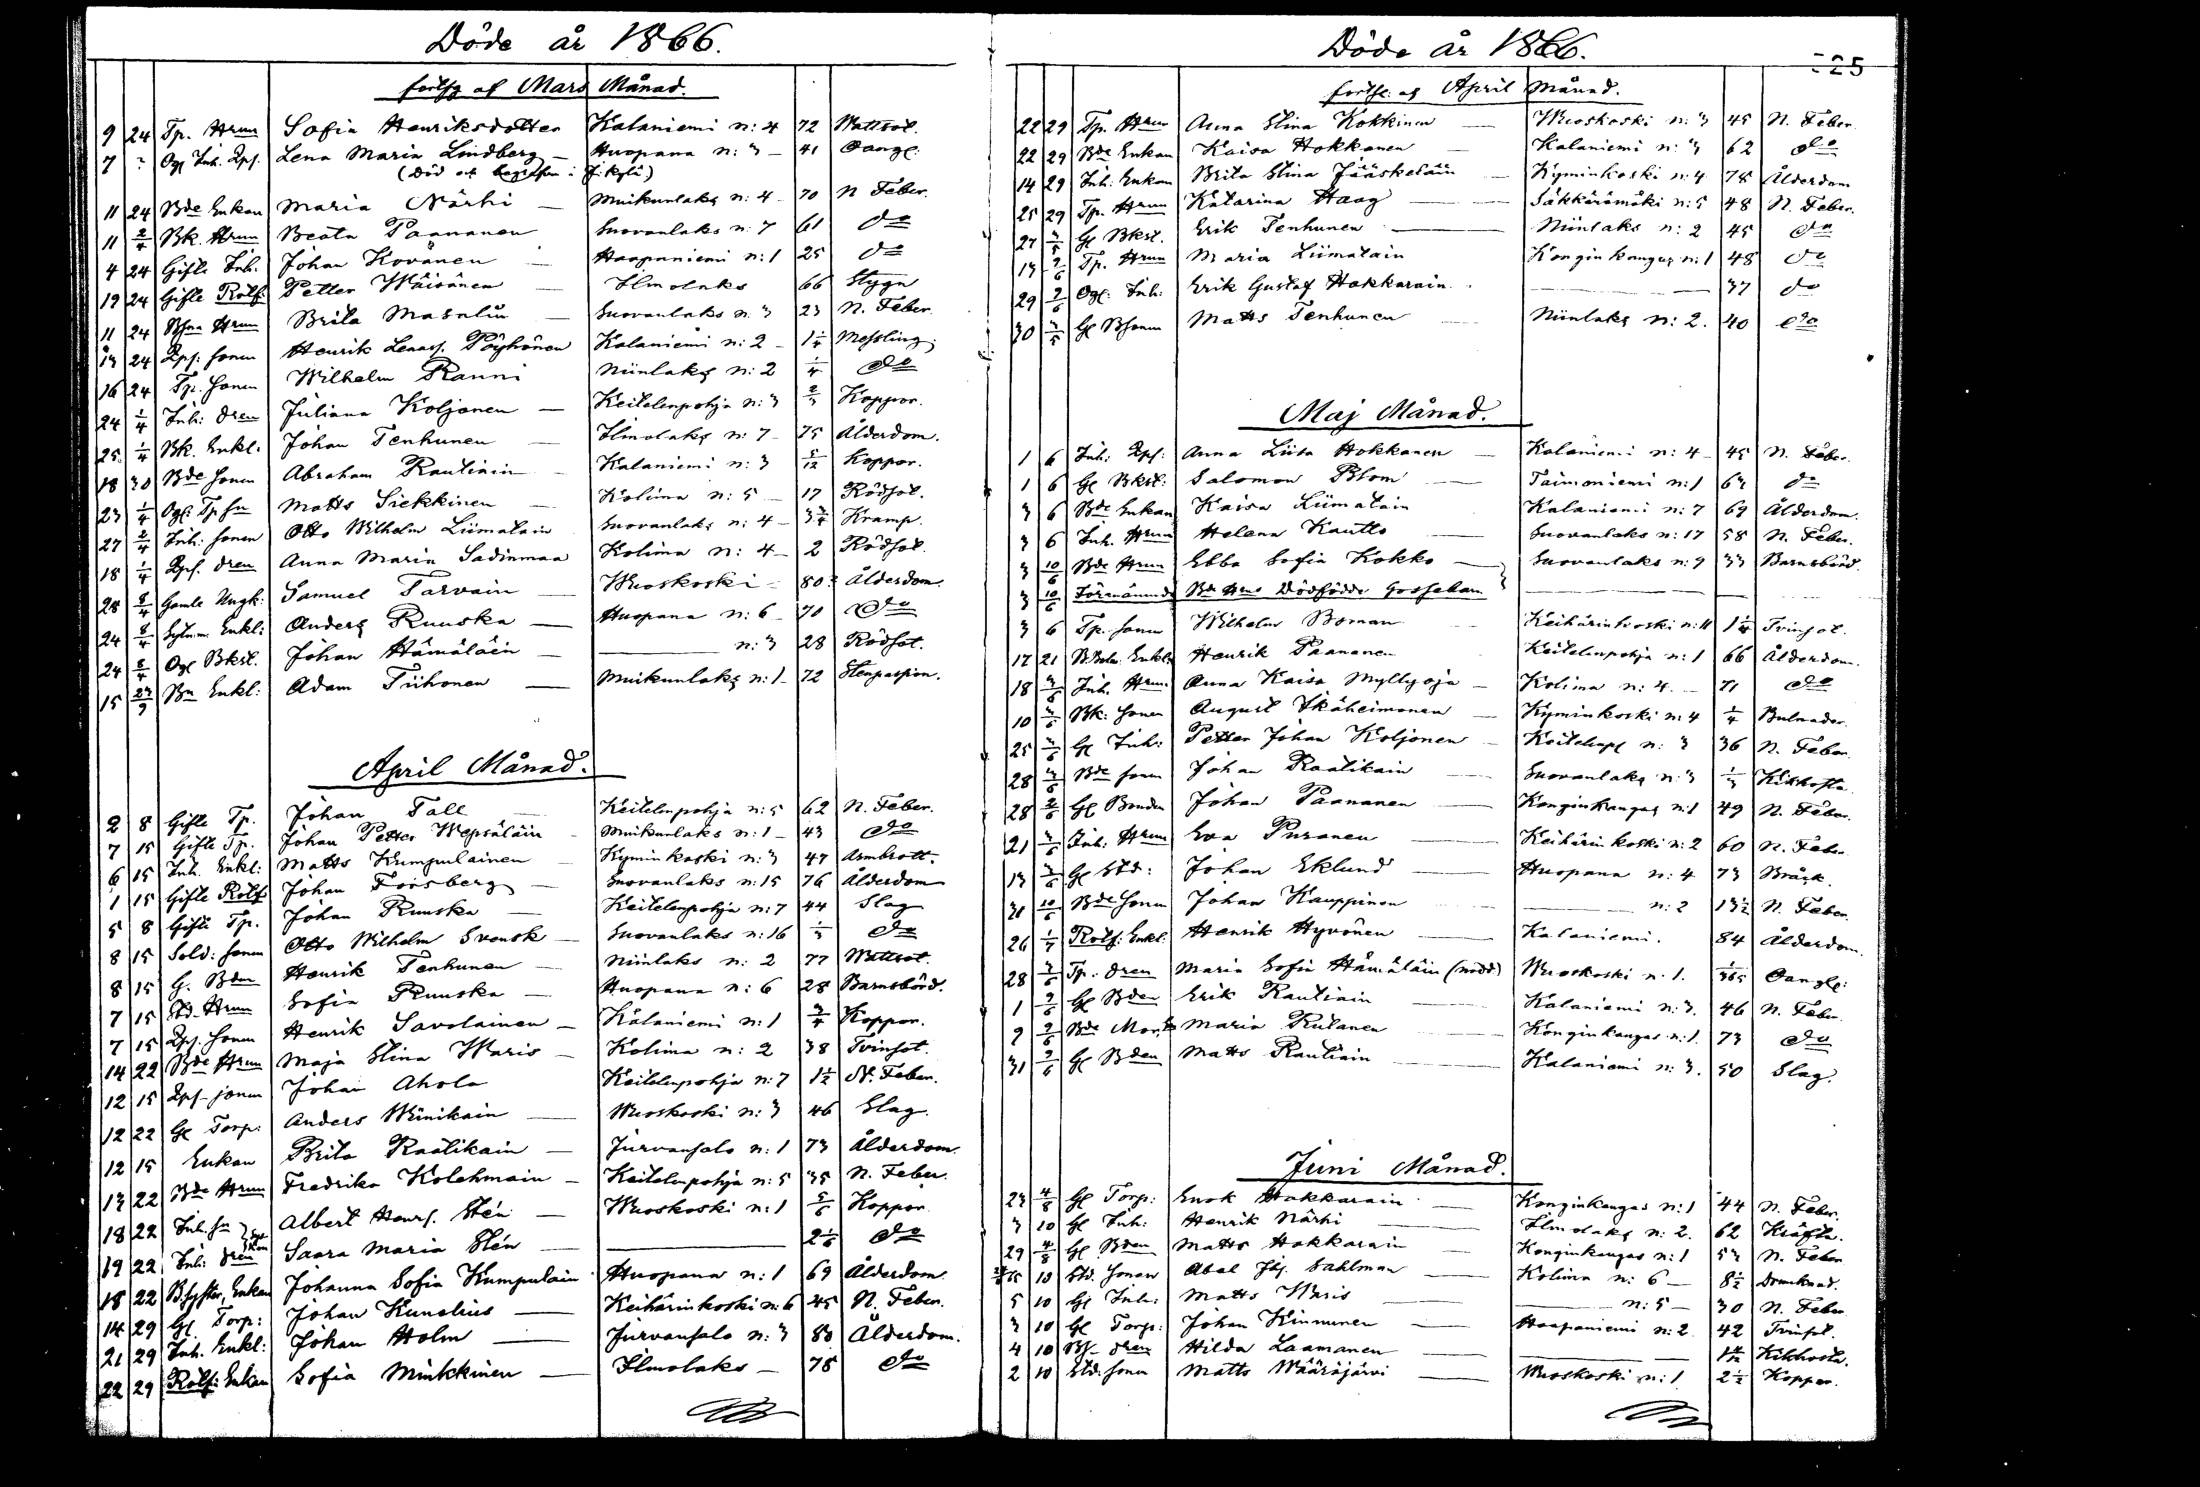 Döde år 1866.
forts af Mars Månad.
9 24 Tp. Hrun Sofia Henriksdotter Kalaniemi n: 4 72 Wattsot.
7 Ogl Inh. Lena Maria Lindberg — Huopana n: 3 — 41 Oangl.
(Död och begrafven i
11 24 Bde Enkan Maria Närhi — Muikunlaks n: 4 — 70 N Feber.
11 2/4 Bk. Hrun Beata Paananen Suovanlaks n: 7 61 do
4 24 Gifte Inh. Johan Kovanen — Haapaniemi n: 1 25 do
19 24 Gifte Rotf: Petter Wäisänen — Ilmolaks 66 Stygn
11 24 Hrun Brita — Suovanlaks n. 3 23 N. Feber.
13 24 sonen Henrik Pöyhönen Kalaniemi n: 2 — Messling.
16 24 Tp. sonen Wilhelm Ranni Niinlaks n: 2 1/4 do
24 1/4 Inh: dren Juliana Koljonen — Keitelenpohja n: 3 2/3 Koppor.
25 1/4 Bk. Enkl. Johan Tenhunen — Ilmolaks n: 7 — 75 Ålderdom.
18 30 Bde sonen Abraham Rautiain Kalaniemi n: 3 5/12 Koppor.
23 1/4 Ogl. Tp sn Matts Siekkinen — Kolima n: 5 — 17 Rödsot.
27 2/4 Inh: sonen Otto Wilhelm Liimatain Suovanlaks n: 4 — 3 3/4 Kramp.
18 1/4 dren Anna Maria Sadinmaa Kolima n: 4 — 2 Rödsot.
28 8/4 Gamle Ungk: Samuel Tarvain — Wuoskoski — 80 Ålderdom.
24 8/4 Enkl: Anders Ruuska — Huopana n: 6 — 70 do
24 8/4 Ogl Bkst. Johan Hämäläin — n: 3 28 Rödsot.
15 Bn Enkl: Adam Tiihonen — Muikunlaks n: 1 — 72 Stenpassion.
April Månad.
2 8 Gifte Tp. Johan Tall — Keitelenpohja n: 5 62 N. Feber.
7 15 Gifte Tp. Johan Petter Wepsäläin — Muikunlaks n: 1 — 43 do
6 15 Inh. Enkl: Matts Kumpulainen — Kyminkoski n: 3 47 Armbrott.
1 15 Gifte Rotf Johan Forsberg — Suovanlaks n: 15 76 Ålderdom
5 8 Gifte Tp. Johan Ruuska — Keitelenpohja n: 7 44 Slag
8 15 Sold: sonen Otto Wilhelm Svensk — Suovanlaks n: 16 1/3 do
8 15 G. Bdn Henrik Tenhunen — Niinlaks n: 2 77 Wattsot.
7 15 Std. Hrun Sofia Ruuska — Huopana n: 6 28 Barnsbörd.
7 15 sonen Henrik Savolainen — Kalaniemi n: 1 3/4 Koppor.
14 22 Bde Hrun Maja Stina Waris — Kolima n: 2 38 Tvinsot.
12 15 sonen Johan Ahola Keitelenpohja n: 7 1 1/2 N. Feber.
12 22 Gl Torp: Anders Wiinikain — Wuoskoski n: 3 46 Slag.
12 15 Enkan Brita Raatikain — Jurvansalo n: 1 73 Ålderdom
13 22 Bde Hrun Fredrika Kolehmain — Keitelenpohja n: 5 35 N. Feber.
18 22 Inh. sn Albert Henrs. Stén — Wuoskoski n: 1 5/6 Koppor
19 22 Inh: dren Saara Maria Stén — 2 1/6 do
18 22 Enkan Johanna Sofia Kumpulain Huopana n: 1 69 Ålderdom
14 29 Gl. Torp: Johan Kunelius — Keihärinkoski n: 6 45 N. Feber.
21 29 Inh. Enkl: Johan Holm — Jurvansalo n: 3 80 Ålderdom.
22 29 Rotf: Enkan Sofia Minkkinen — Ilmolaks — 78 do
Döde år 1866.
225
forts: af April Månad.
22 29 Tp. Hrun Anna Stina Kokkinen — Wuoskoski n: 3 45 N. Feber.
22 29 Bde Enkan Kaisa Hokkanen — Kalaniemi n: 3 62 do
14 29 Inh: Enkan Brita Stina Jääskeläin — Kyminkoski n: 4 78 Ålderdom
25 29 Tp. Hrun Katarina Haag — Säkkärämäki n: 5 48 N. Feber.
27 3/5 Gl Bkst. Erik Tenhunen — Niinlaks n: 2 45 do
13 Tp. Hrun Maria Liimatain Konginkangas n: 1 48 do
29 Ogl: Inh: Erik Gustaf Hakkarain — 37 do
30 3/5 Gl Matts Tenhunen — Niinlaks n: 2. 40 do
Maj Månad.
1 6 Inh: Anna Liisa Hokkanen — Kalaniemi n: 4 — 45 N. Feber.
1 6 Gl Bkst. Salomon Blom — Taimoniemi n: 1 63 do
3 6 Bde Enkan Kaisa Liimatain Kalaniemi n: 7 69 Ålderdom.
3 6 Inh. Hrun Helena Kautto — Suovanlaks n: 17 58 N. Feber.
3 10/6 Bde Hrun Ebba Sofia Kokko — Suovanlaks n: 9 33 Barnsbörd.
3 10/6 Bde Hrus Dödfödde Gossebarn —
3 6 Tp. sonen Wilhelm Boman Keihärinkoski n: 11 1 1/4 Tvinsot.
17 21 Enkl: Henrik Paananen Keitelenpohja n: 1 66 Ålderdom.
18 3/6 Inh. Hrun Anna Kaisa Myllyoja — Kolima n: 4. — 71 do
10 3/6 Bk: sonen August Ikäheimonen — Kyminkoski n: 4 1/4 Bulnader.
25 3/6 Gl Inh: Petter Johan Koljonen — n: 3 36 N. Feber.
28 3/6 Bde sonen Johan Raatikain — Suovanlaks n: 3 1/3 Kikhosta.
28 Gl Bonden Johan Paananen — Konginkangas n: 1 49 N. Feber.
21 3/6 Inh. Hrun Eva Puranen — Keihärinkoski n: 2 60 N. Feber
13 3/6 Gl Std: Johan Eklund — Huopana n: 4 73 Bråck.
31 10/6 Bde sonen Johan Kauppinen — n: 2 13 1/2 N. Feber.
26 1/7 Rotf: Enkl: Henrik Hyvönen — Kalaniemi. 84 Ålderdom.
28 3/6 Tp: dren Maria Sofia Hämäläin (nödd) Wuoskoski n: 1. 1/365 Oangl:
1 Gl Bden Erik Rautiain — Kalaniemi n: 3. 46 N. Feber.
2 Bde Maria Rutanen — Konginkangas n: 1. 73 do
31 Gl Bden Matts Rautiain — Kalaniemi n: 3. 50 Slag.
Juni Månad.
23 4/8 Gl Torp: Enok Hakkarain — Konginkangas n: 1 44 N. Feber.
3 10 Gl Inh: Henrik Närhi — Ilmolaks n: 2. 62 Kräfta.
29 4/8 Gl Bden Matts Hakkarain — Konginkangas n: 1 53 N. Feber
10 Std. sonen Abel Sahlman — Kolima n: 6 — 8 1/2 Drunknad.
5 10 Gl Inh: Matts Waris — n: 5 — 30 N. Feber
3 10 Gl Torp: Johan Kinnunen — Haapaniemi n: 2 42 Tvinsot.
4 10 dren Hilda Laamanen — Kikhosta.
2 10 Std: sonen Matts Määräjärvi — Wuoskoski n: 1 2 1/2 Koppor.